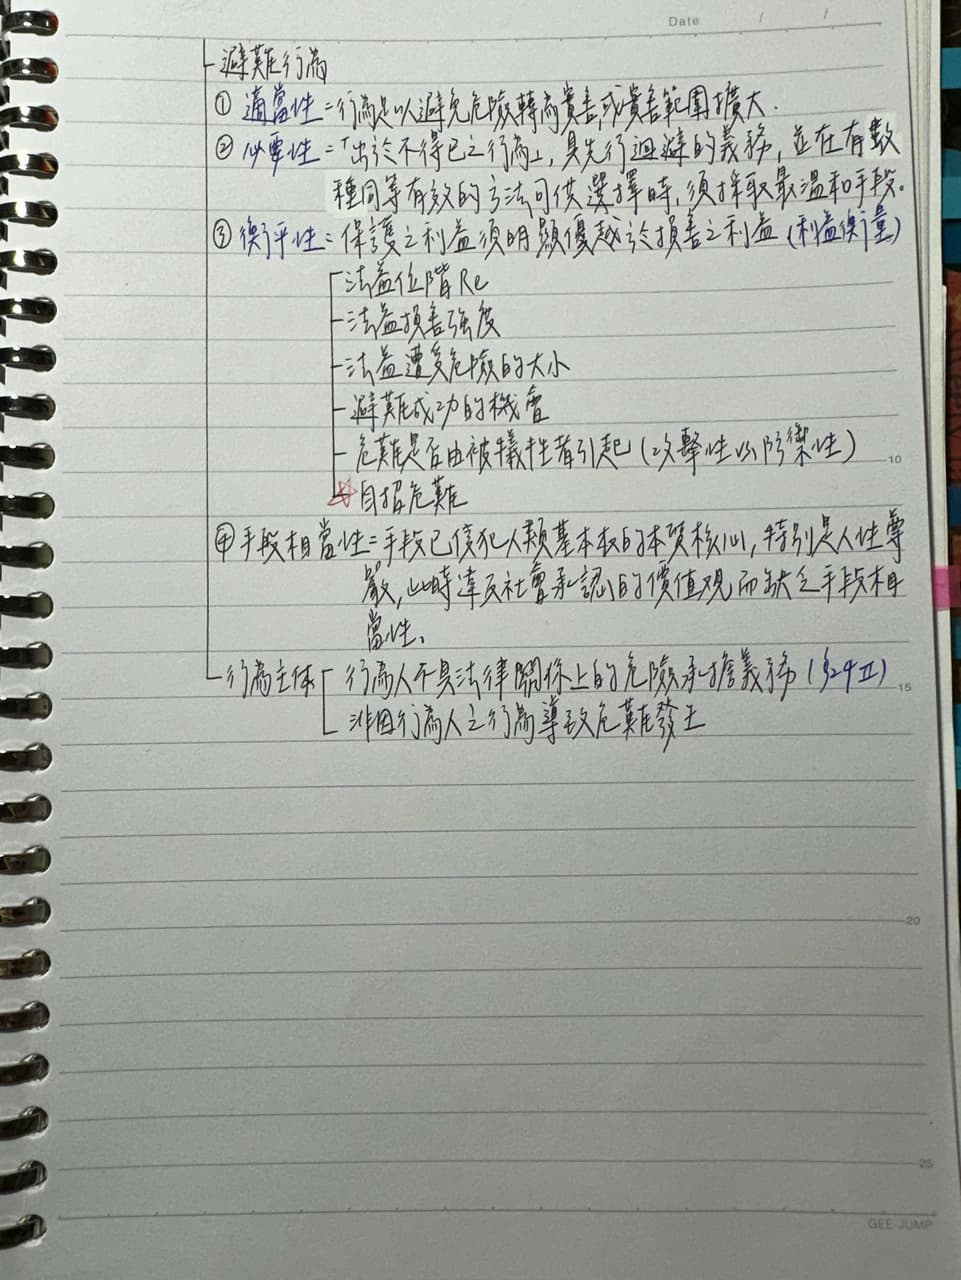 Date / /
避難行為
① 適當性=行為足以避免危險轉為實害,或實害範圍擴大.
② 必要性=「出於不得已之行為」,具先行迴避的義務,並在有數
種同等有效的方法可供選擇時,須採取最溫和手段。
③ 衡平性=保護之利益須明顯優越於損害之利益(利益衡量)
法益位階Re
法益損害強度
法益遭受危險的大小
避難成功的機會
危難是否由被犧牲者引起(攻擊性 防禦性)
10
☆自招危難
④手段相當性=手段已侵犯人類基本權的本質核心,特別是人性尊
嚴,此時違反社會承認的價值觀而缺乏手段相
當性.
行為主体 行為人不具法律關係上的危險承擔義務(§24Ⅱ)
15
非因行為人之行為導致危難發生
20
25
GEE-JUMP